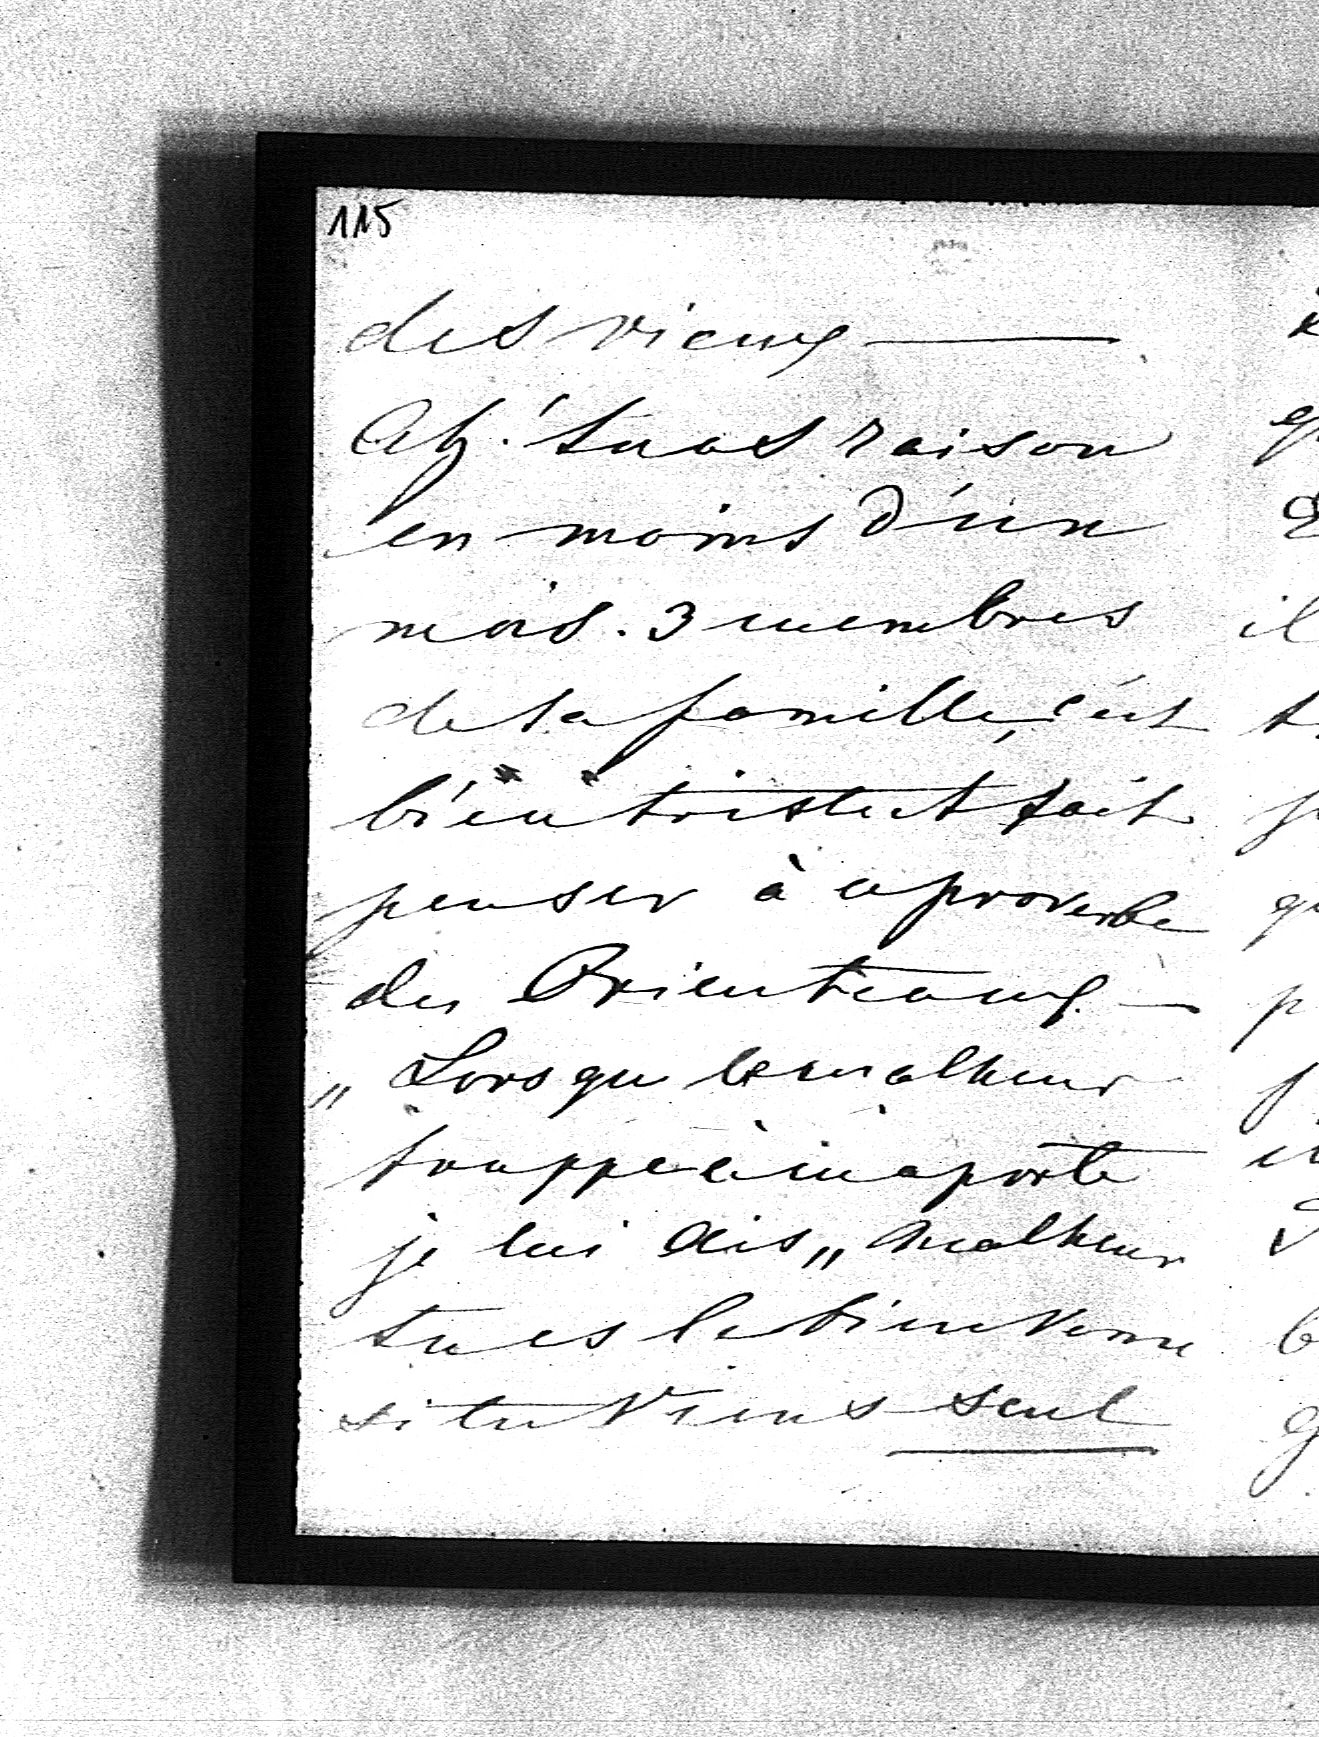 115
des vieux —
Ah! tu as raison
en moins d'un
mois. 3 membres
de ta famille, c'est
bien triste et fait
penser à ce proverbe
des Orienteaux. —
„ Lorsque le malheur
frappe à ma porte
je lui dis „ Malheur
tu es le bien venu
si tu viens seul